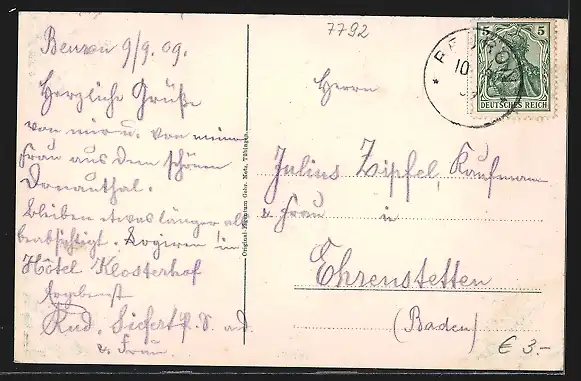 7792
Beuron 9/9. 09.
Herzliche Grüße
von mir u. von meiner
Frau aus dem schönen
Donauthal.
Bleiben etwas länger als
beabsichtigt. Logieren im
Hôtel Klosterhof
Ergebenst
Rud. Siefert
u. Frau
Original-Eigentum Gebr. Metz, Tübingen
5 5
DEUTSCHES REICH
BEURON
10
Herrn
Julius Zipfel, Kaufmann
u. Frau in
Ehrenstetten
(Baden)
€ 3.-